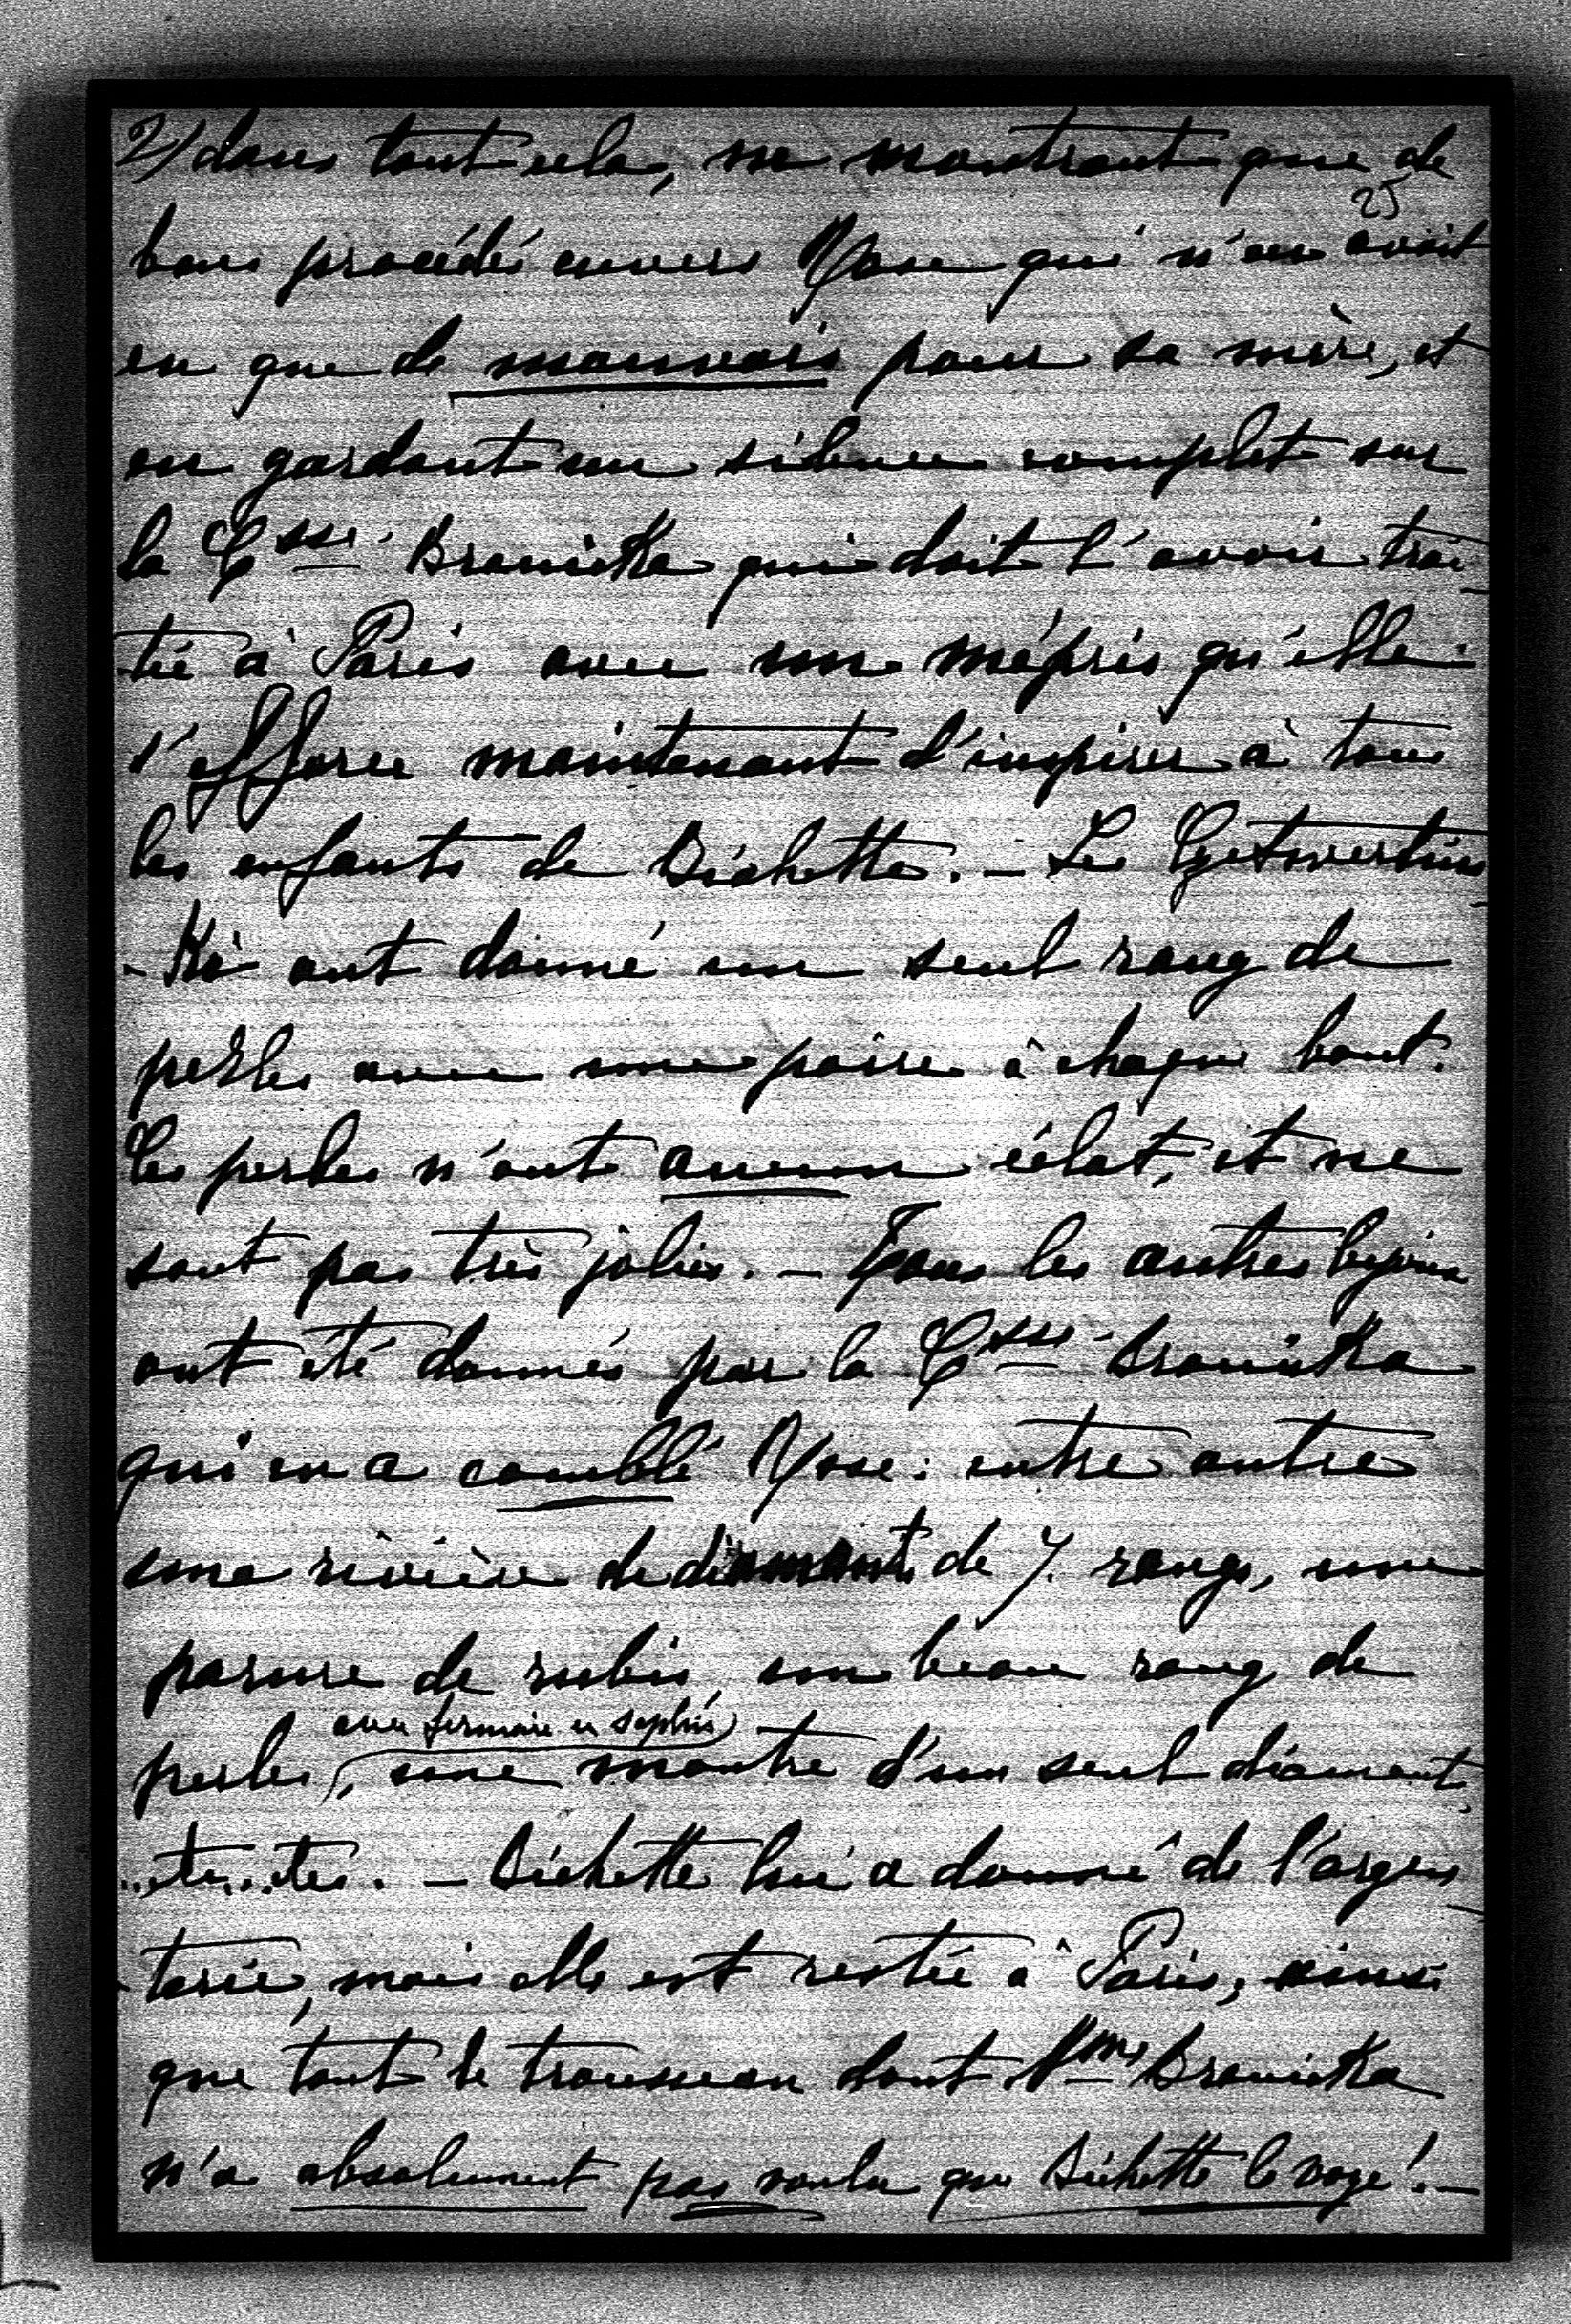 2) dans tout cela, ne montrant que de
25
bons procédés envers Rose qui n'en avait
eu que de mauvais pour sa mère, et
en gardant un silence complet sur
la Csse Branicka qui doit l'avoir trai-
tée à Paris avec un mépris qu'elle
s'efforce maintenant d'inspirer à tous
les enfants de Bichette. – Les Czetwertins-
-Ki ont donné un seul rang de
perles avec une poire à chaque bout.
Les perles n'ont aucun éclat, et ne
sont pas très jolies. – Tous les autres bijoux
ont été donnés par la Csse Branicka
qui en a comblé Rose: entre autre
une rivière de diamants de 7. rangs, une
parure de rubis, un beau rang de
avec fermoir en saphir
perles, une montre d'un seul diamant
..etc..etc. – Bichette lui a donné de l'argen-
-terie, mais elle est restée à Paris, ainsi
que tout le trousseau dont Mme Branicka
n'a absolument pas voulu que Bichette le voye! –